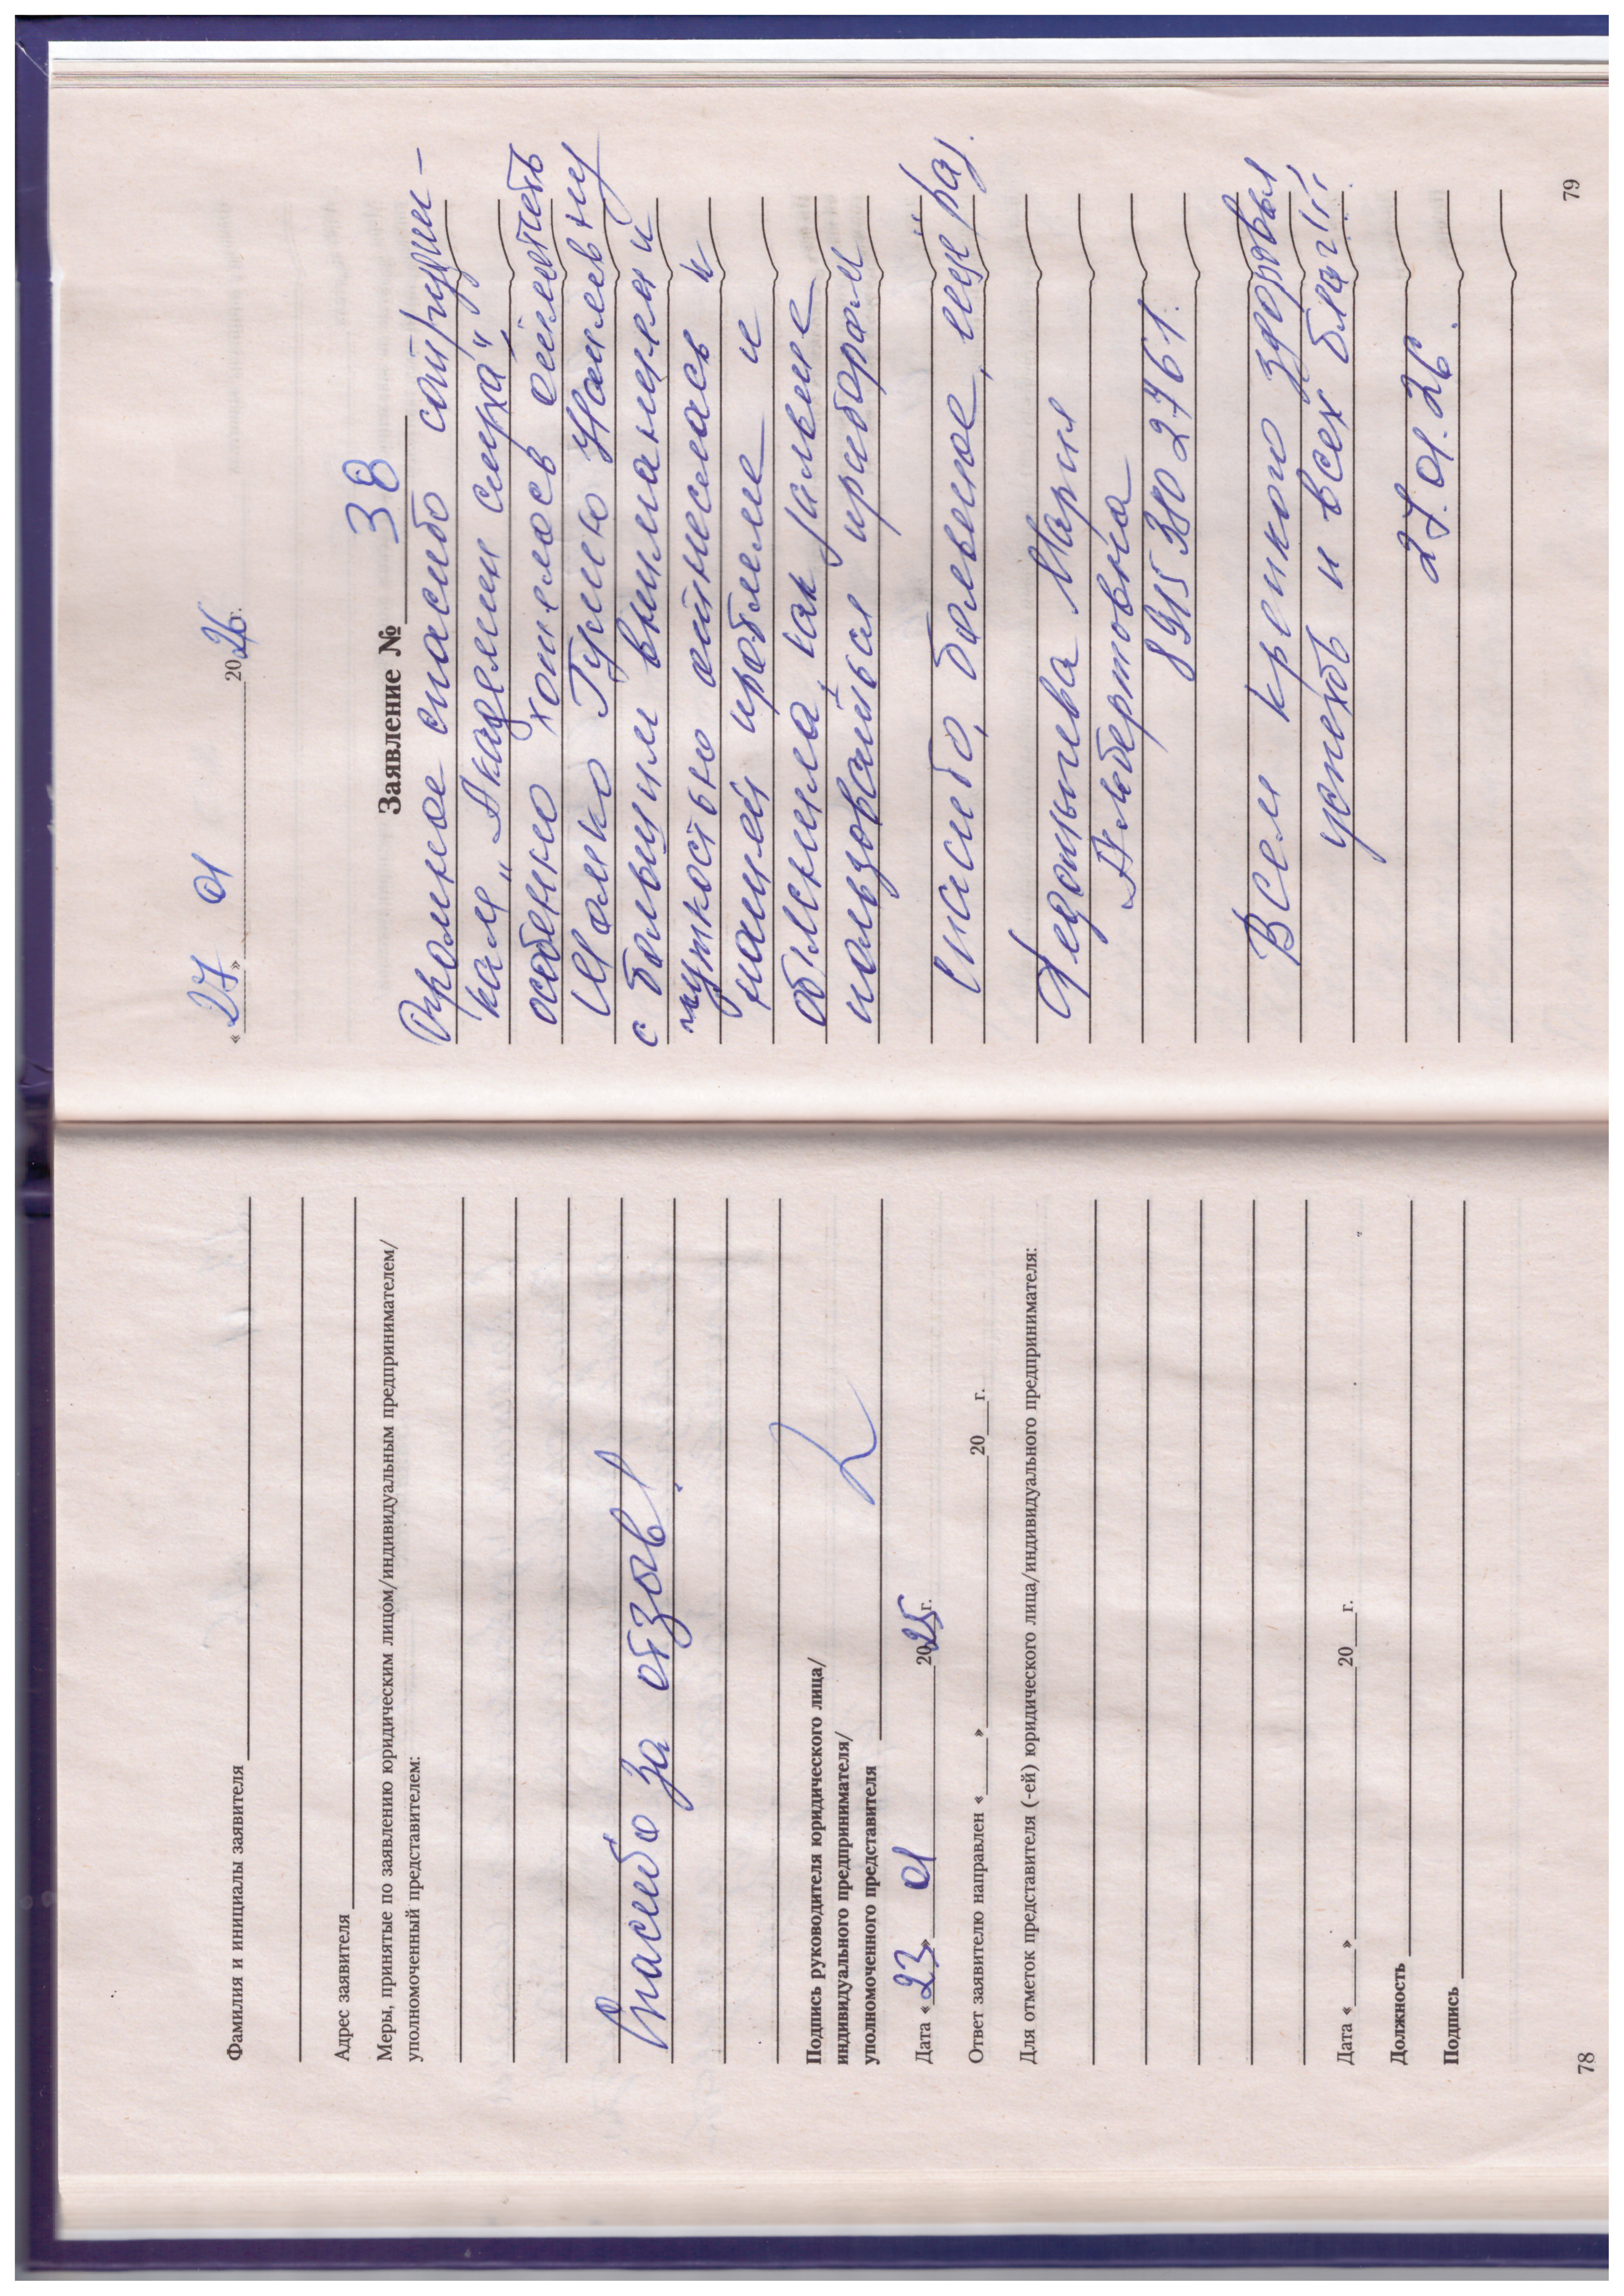 Фамилия и инициалы заявителя
Адрес заявителя
Меры, принятые по заявлению юридическим лицом/индивидуальным предпринимателем/
уполномоченный представителем:
Спасибо за отзыв!
Подпись руководителя юридического лица/
индивидуального предпринимателя/
уполномоченного представителя
Дата «23» 01 2025г.
Ответ заявителю направлен «___»___20___г.
Для отметок представителя (-ей) юридического лица/индивидуального предпринимателя:
Дата «___»___20___г.
Должность
Подпись
78
«27» 01 2026г.
Заявление № 38
Огромное спасибо сотрудни-
кам „Академии слуха",
особенно хотелось отметить
Цалко Наилевну
с большим вниманием и
чуткостью отнеслась к
нашей проблеме и
объяснила, как
пользоваться прибором
Спасибо, большое, ещё раз.
Мария
Альбертовна
8915 380 2761.
Всем крепкого здоровья
успехов и всех благ!!!
27.01.26.
79